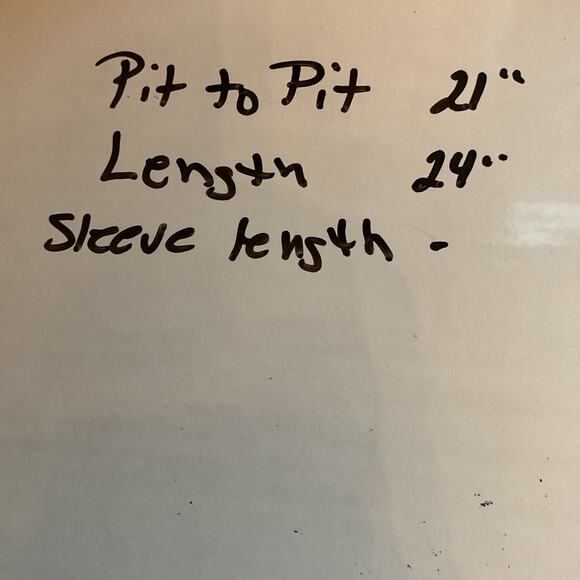 Pit to Pit 21"
Length 24"
Sleeve length -